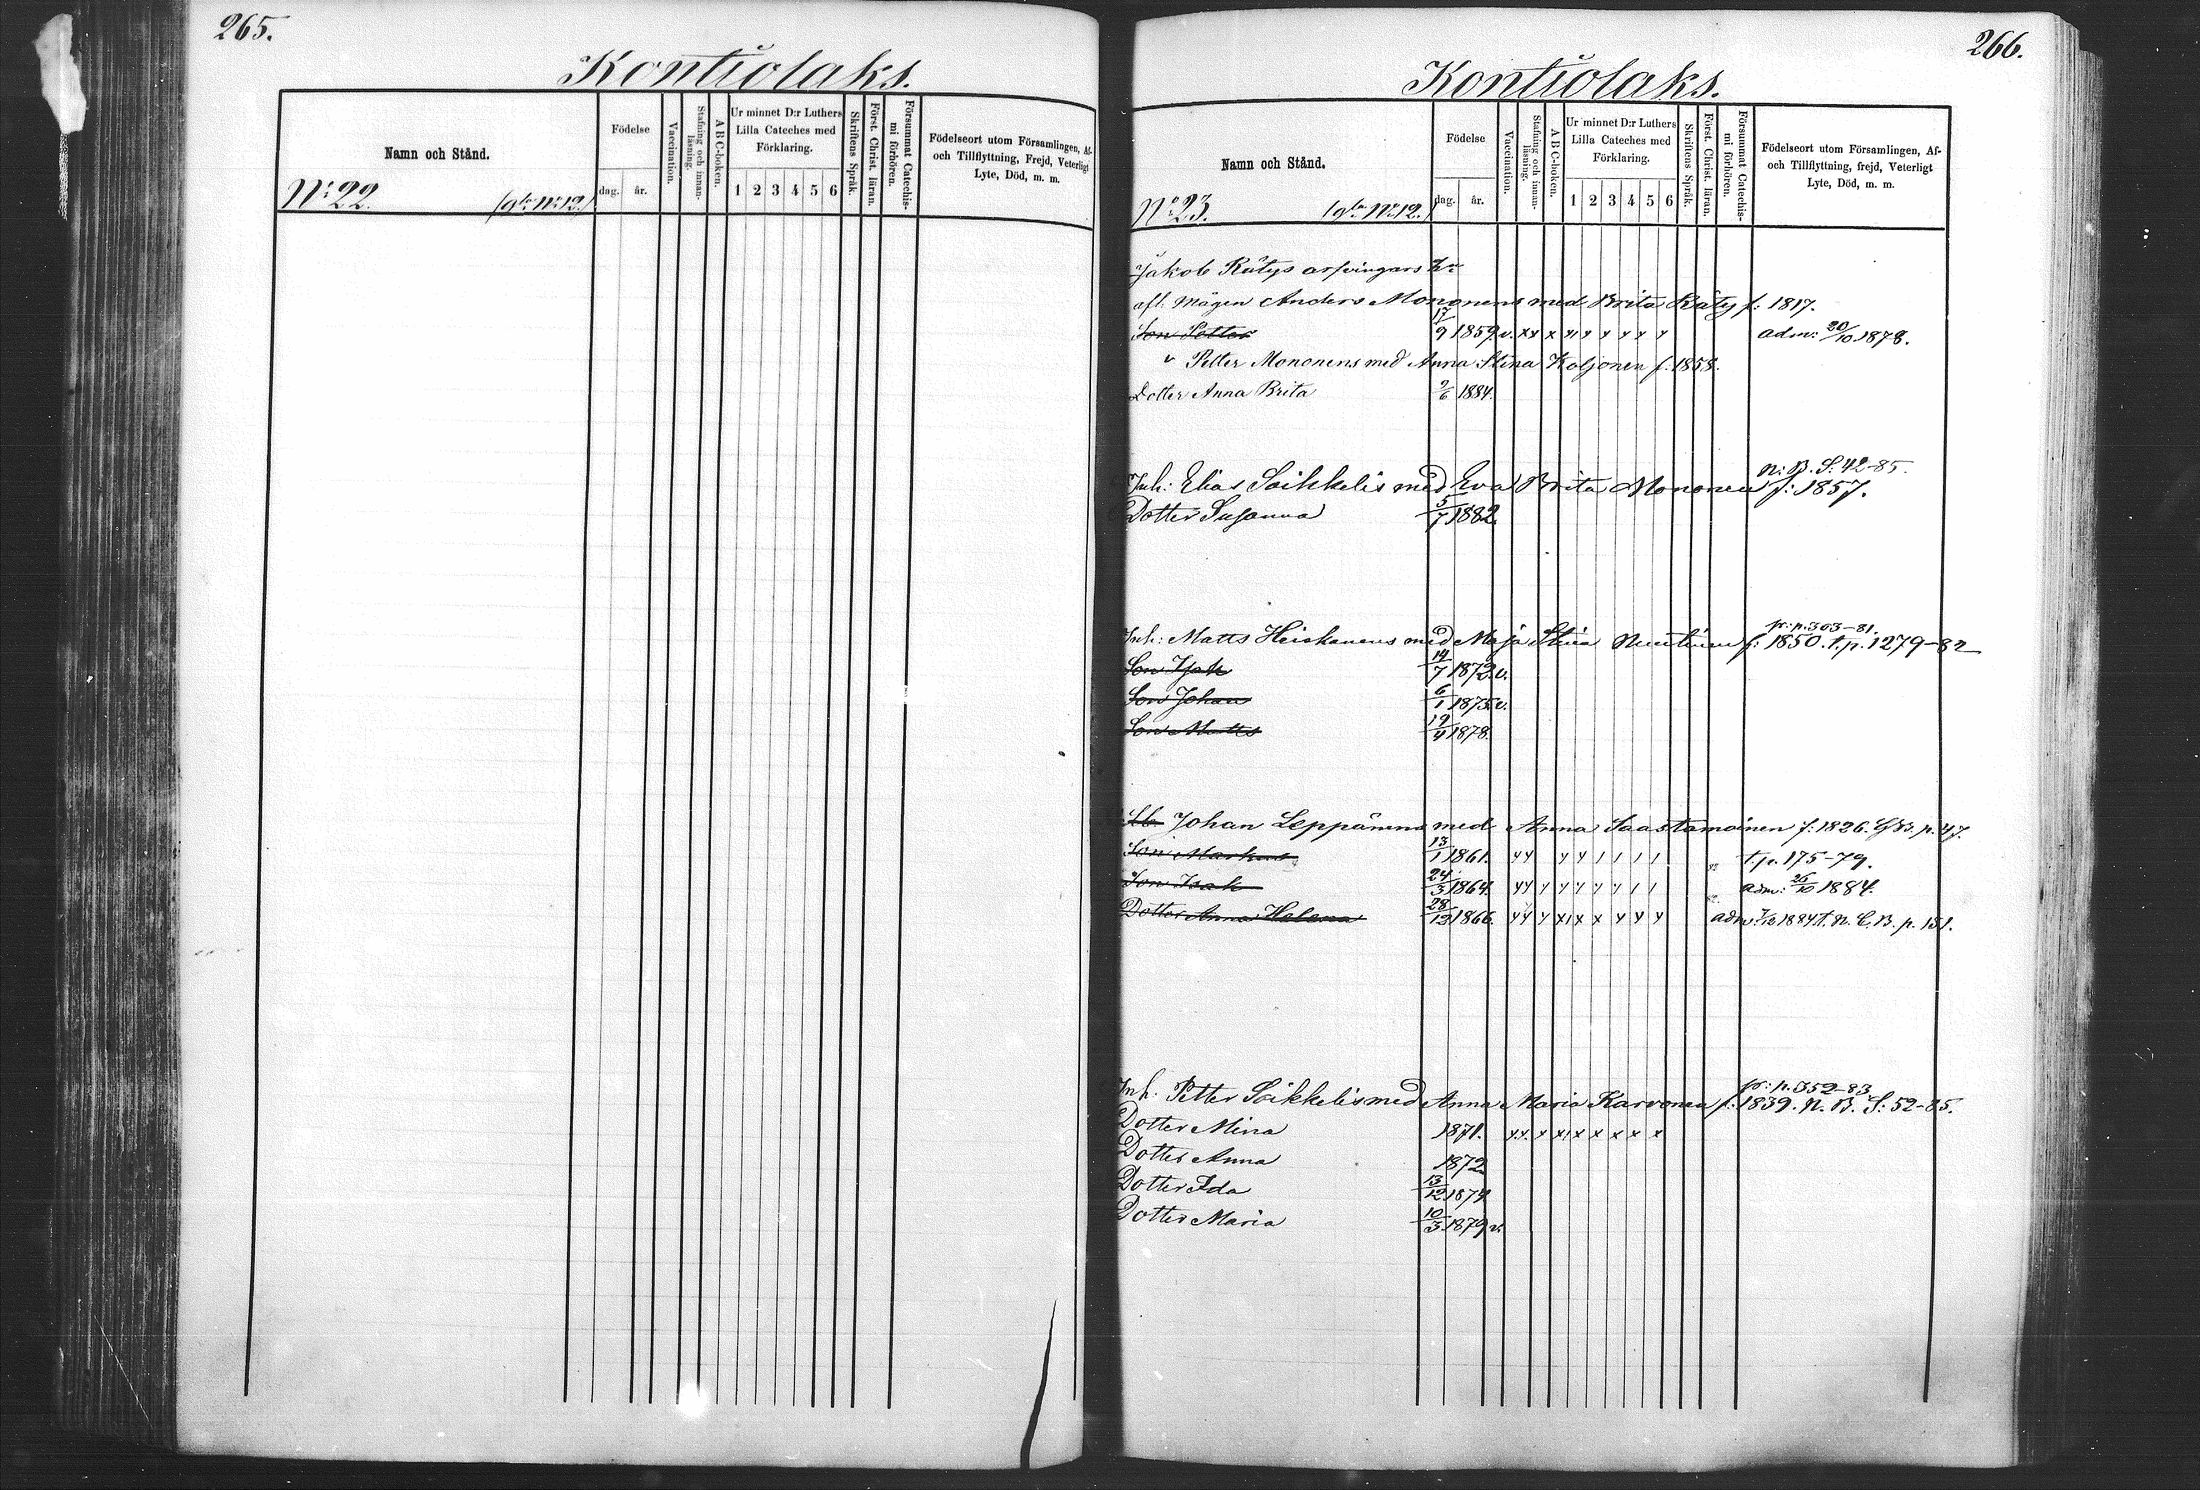 265.
Kontiolaks.
Namn och Stånd.
Födelse
dag. år.
Vaccination.
Stafning och innanläsning.
A B C-boken.
Ur minnet D:r Luthers Lilla Cateches med Förklaring.
1 2 3 4 5 6
Skriftens Språk.
Först. Christ. läran.
Försummat Catechismi förhören.
Födelseort utom Församlingen, Af- och Tillflyttning, Frejd, Veterligt Lyte, Död, m. m.
N:22. (gla N:12.)
266.
Kontiolaks.
Namn och Stånd.
Födelse
dag. år.
Vaccination.
Stafning och innanläsning.
A B C-boken.
Ur minnet D:r Luthers Lilla Cateches med Förklaring.
1 2 3 4 5 6
Skriftens Språk.
Först. Christ. läran.
Försummat Catechismi förhören.
Födelseort utom Församlingen, Af- och Tillflyttning, frejd, Veterligt Lyte, Död, m. m.
N:23. (gla N:12.)
Jakob Rätys arfvingars
afl: Mågen Anders Mononens med Brita Räty f: 1817.
Son Petter 17/9 1859. v. xx x x x x x x x adm: 20/10 1878.
v Petter Mononens med Anna Stina Koljonen f. 1858.
Dotter Anna Brita 9/6 1884.
n: B. S: 42-85.
Inh: Elias Soikkelis med Eva Brita Mononen f: 1857.
Dotter Susanna 5/7 1882.
fr: p. 303-81.
Inh: Matts Heiskanens med Maja Stina Nuutinen f: 1850. t. p. 1279-82
Son Isak 14/7 1872. v.
Son Johan 6/1 1875. v.
Son Matts 19/4 1878.
Johan Leppänens med Anna Saastamoinen f: 1826. p. 47.
Son Markus 13/1 1861. t. p. 175-79.
Son Isak 24/3 1864. adm: 26/10 1884.
Dotter Anna Helena 28/12 1866. adm: 7/12 1884 t. N. C. B. p. 151.
fr: p. 352-83.
Inh: Petter Soikkelis med Anna Maria Karvonen f: 1839. N. B. S: 52-85.
Dotter Mina 1871.
Dotter Anna 1872
Dotter Ida 13/12 1874
Dotter Maria 10/3 1879 v.